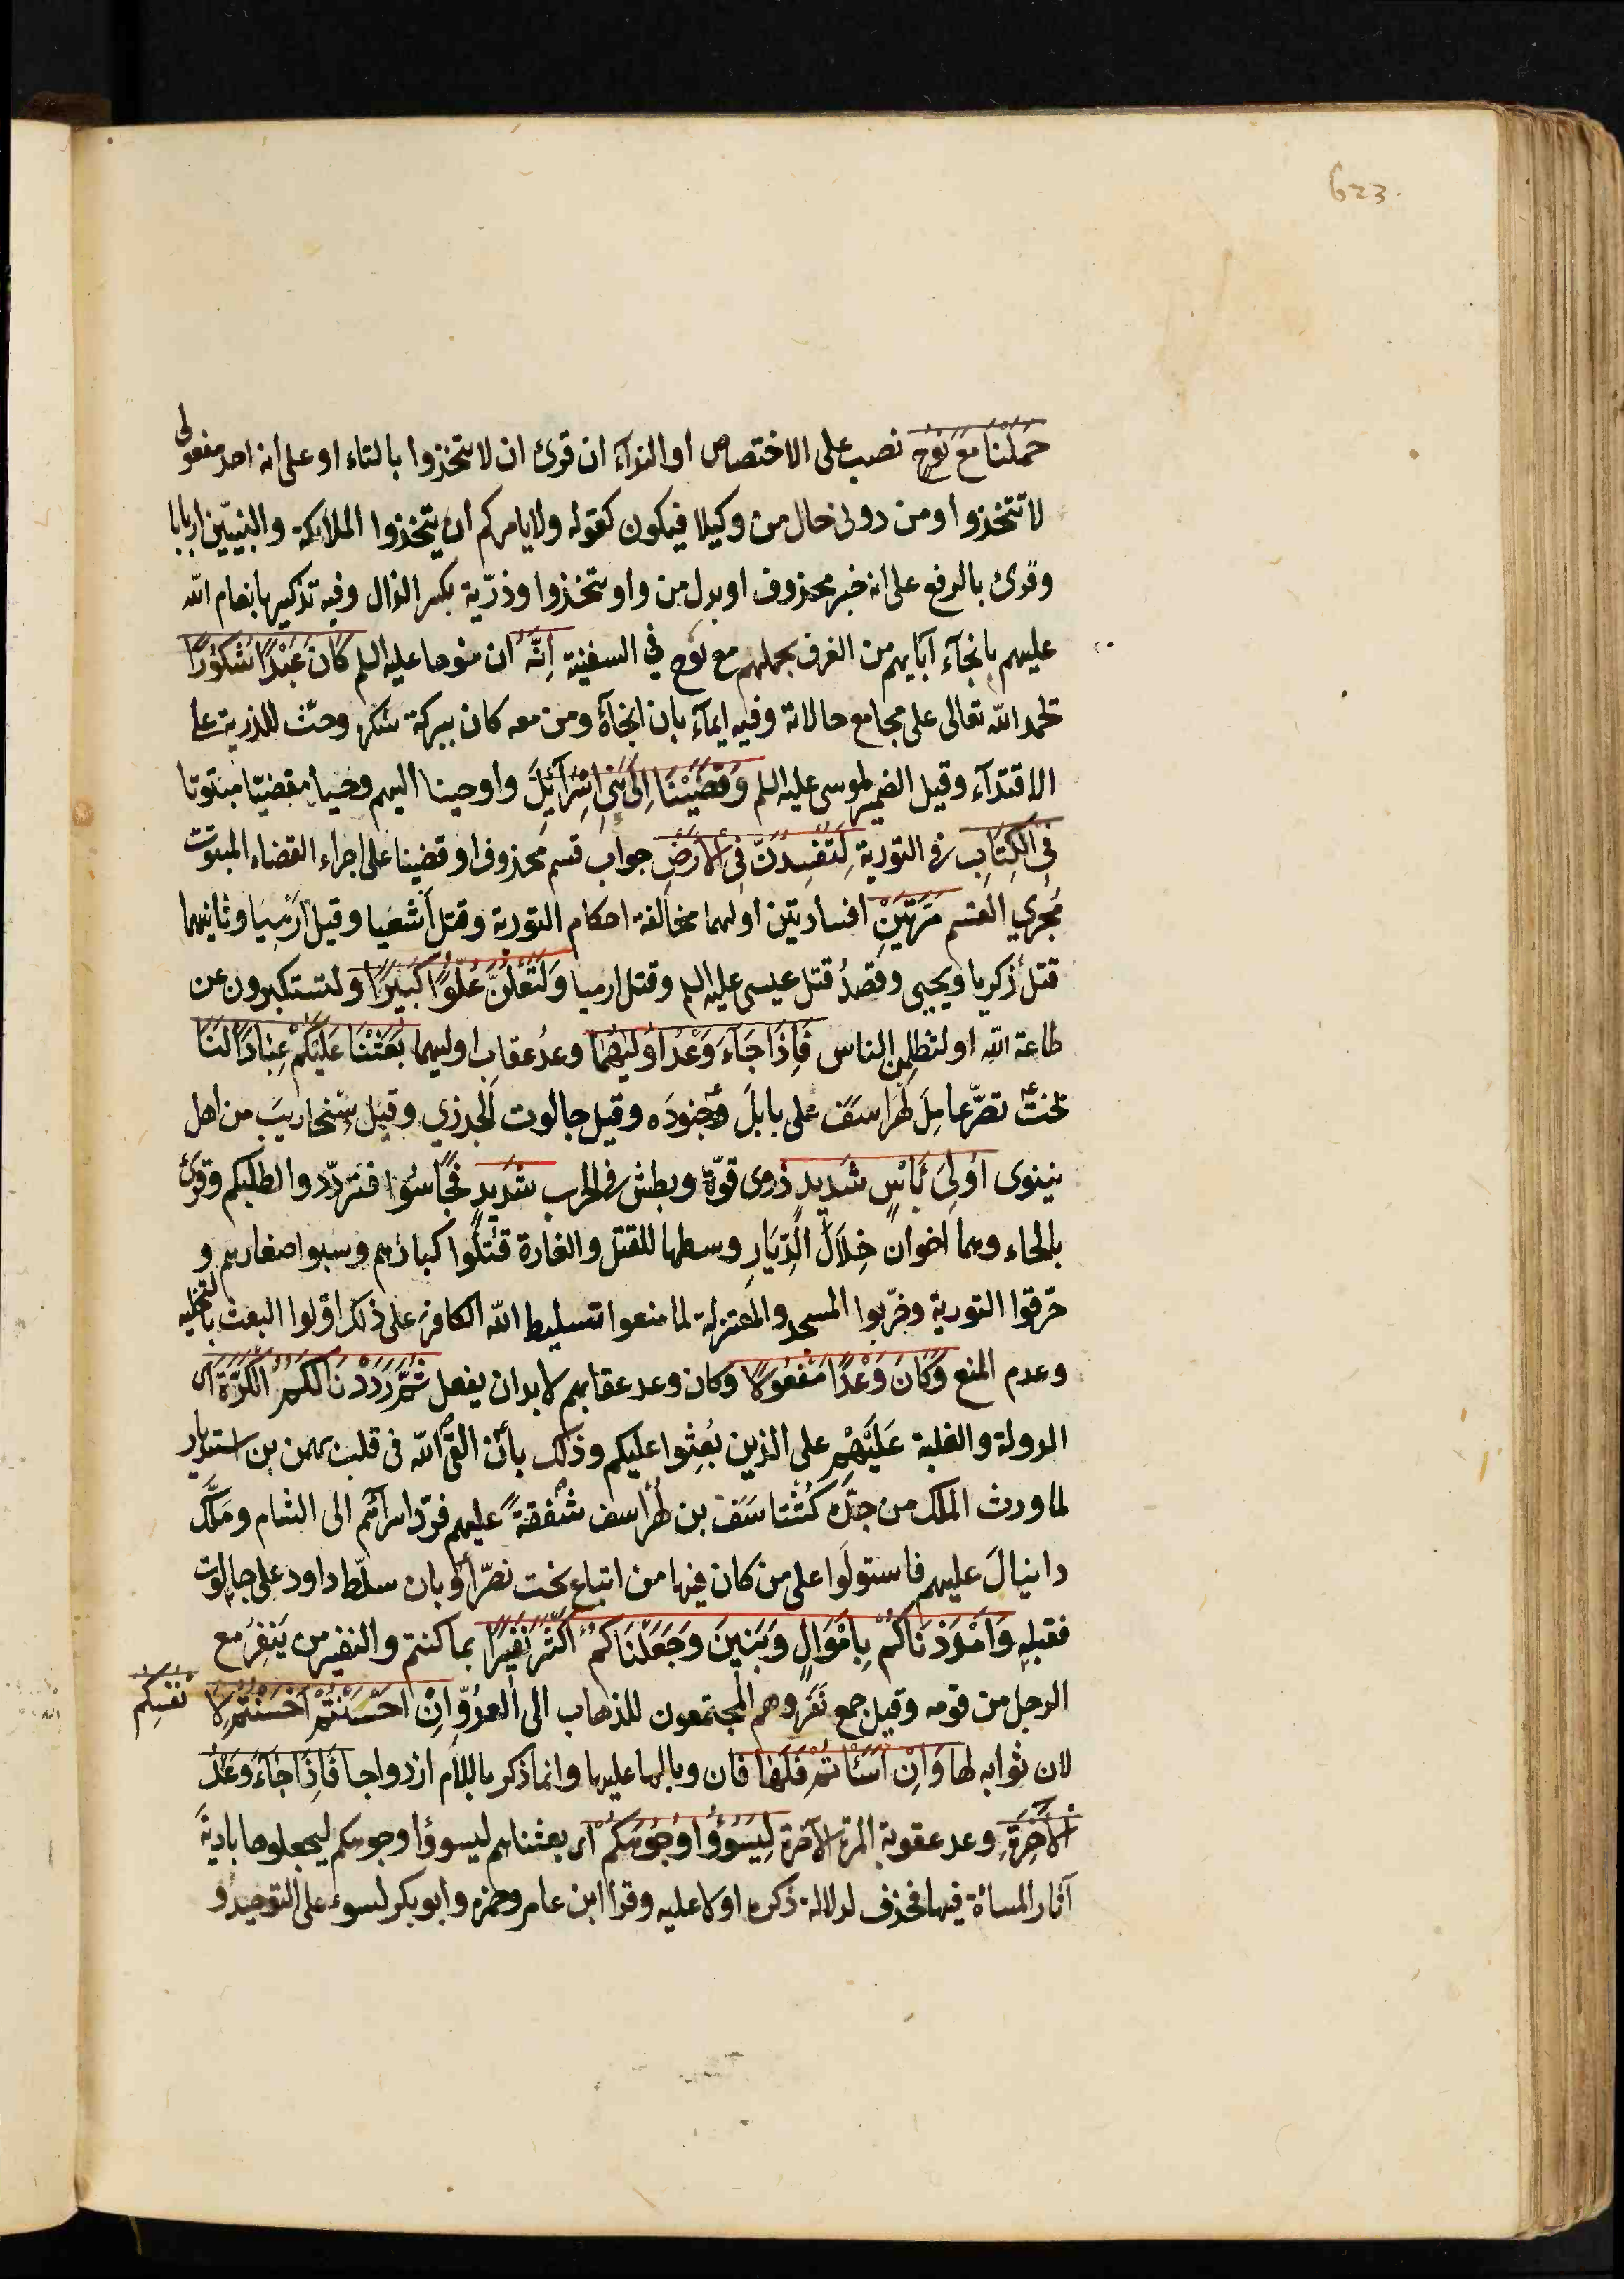 623
حَمَلْنَا مَعَ نُوحٍ نصب على الاختصاص او النداء ان قرئ ان لا تتخذوا بالتاء او على انه احد مفعولى
لا تتخذوا ومن دونى حال من وكيلا فيكون كقوله ولا يامركم ان يتخذوا الملائكة والنبيّين اربابا
وقرئ بالرفع على انه خبر محذوف او بدل من واو تتخذوا وذرّية بكسر الذال وفيه تذكير بانعام الله
عليهم بانجآء آبايهم من الغرق بحملهم مع نوح في السفينة اِنَّهُ ان نوحا عليه السلم كَانَ عَبْدًا شَكُورًا
يحمد الله تعالى على مجامع حالاته وفيه ايمآء بان انجآءه ومن معه كان ببركة شكره وحثّ للذرية على
الاقتدآء وقيل الضمير لموسى عليه السلم وَقَضَيْنَا اِلَى بَنِي اِسْرَآئِلَ واوحينا اليهم وحيا مقضيّا مبتوتا
فِى الْكِتَابِ فى التورية لَتُفْسِدُنَّ فِى الْاَرْضِ جواب قسم محذوف او قضينا على اجراء القضاء المبتوت
مُجرى القسم مَرَّتَيْنِ افسادتين اولهما مخالفة احكام التورية وقتل اَشعيا وقيل اَرميا وثانيهما
قتلُ زكريا ويحيى وقصدُ قتل عيسى عليه السلم وقتل ارميا وَلَتَعْلُنَّ عُلُوًّا كَبِيرًا ولتستكبرون عن
طاعة الله او لتظلمن الناس فَاِذَا جَآءَ وَعْدُ اُولَيهُمَا وعدُ عقابِ اوليهما بَعَثْنَا عَلَيْكُمْ عِبَادًا لَنَا
بخت نصّر عامِلَ لُهراسَفَ على بابلَ وجنودَه وقيل جالوت الجزري وقيل سنحاريبَ من اهل
نينوى اُولِى بَأْسٍ شَدِيدٍ ذوى قوّة وبطش فى الحرب شديدٍ فَجَاسُوا فتردّدوا لطلبكم وقرئ
بالحاء وهما اخوان خِلَالَ الدِّيَارِ وسطها للقتل والغارة قتلُوا كبارَهم وسبوا صغارهم و
حرّقوا التورية وخرّبوا المسجد والمعتزلة لما منعوا تسليط الله الكافر على ذلك اوّلوا البعث بالتخلية
وعدم المنع وَكَانَ وَعْدًا مَفْعُولًا وكان وعد عقابهم لا بد ان يفعل ثُمَّ رَدَدْنَا لَكُمُ الْكَرَّةَ اى
الدولة والغلبة عَلَيْهِمْ على الذين بُعِثوا عليكم وذلك بأن القى الله فى قلب بهمن بن اسفنديار
لما ورث الملك من جدّه كُشتاسَفَ بن لُهراسف شفقةً عليهم فردّ اسرآئهم الى الشام ومَلَّك
دانيالَ عليهم فاستولَوا على من كان فيها من اتباع بخت نصّر أو بان سلّط داود على جالوت
فقبله وَاَمْدَدْنَاكُمْ بِاَمْوَالٍ وَبَنِينَ وَجَعَلْنَاكُمْ اَكْثَرَ نَفِيرًا بما كنتم والنفير من يَنفِرُ مع
الرجل من قومه وقيل جمع نَفَر وهم المجتمعون للذهاب الى العدُوّ اِنْ اَحْسَنْتُمْ اَحْسَنْتُمْ لِا نْفُسِكُم
لان ثوابه لها وَاِنْ اَسَأْتُمْ فَلَهَا فان وبالها عليها وانما ذكر باللام ازدواجا فَاِذَا جَآءَ وَعْدُ
الْآخِرَةِ وعد عقوبة المرة الآخرة لِيَسُوؤُا وُجُوهَكُمْ اى بعثناهم ليسوؤا وجوهكم ليجعلوها باديةَ
آثار المساءة فيها فحذف لدلالة ذكره اولا عليه وقرأ ابن عامر وحمزه وابو بكر ليسوء على التوحيد و